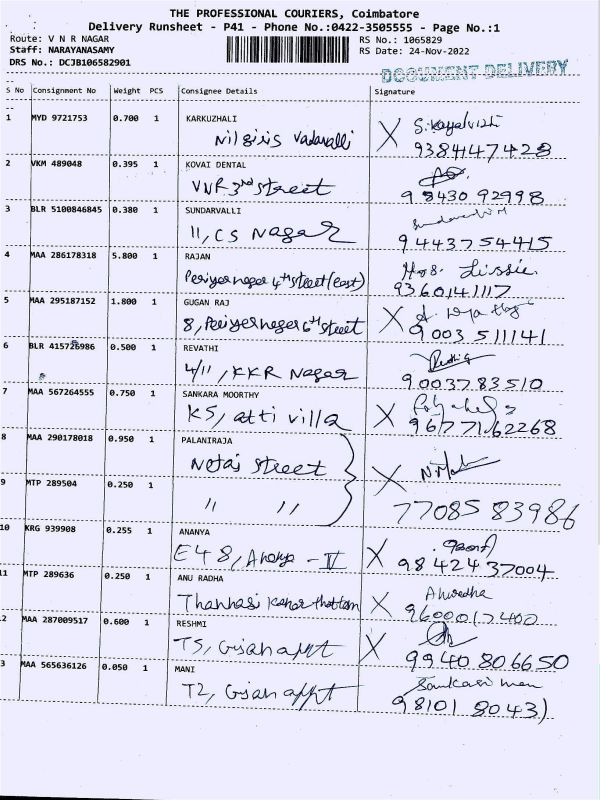 THE PROFESSIONAL COURIERS, Coimbatore
Delivery Runsheet - P41 - Phone No.:0422-3505555 - Page No.:1
Route: V N R NAGAR RS No.: 1065829
Staff: NARAYANASAMY RS Date: 24-Nov-2022
DRS No.: DCJB106582901
DOCUMENT DELIVERY
S No Consignment No Weight PCS Consignee Details Signature
1 MYD 9721753 0.700 1 KARKUZHALI
Nilgiris Vadavalli 9384447428
2 VKM 489048 0.395 1 KOVAI DENTAL
VNR 3rd street 98430 92998
3 BLR 5100846845 0.380 1 SUNDARVALLI
11, CS Nagar 9443754415
4 MAA 286178318 5.800 1 RAJAN
Periyernager 4th street (east) 9360141117
5 MAA 295187152 1.800 1 GUGAN RAJ
8, Periyernager 6th street 9003511141
6 BLR 415726986 0.500 1 REVATHI
4/11, KKR Nagar 9003783510
7 MAA 567264555 0.750 1 SANKARA MOORTHY
KS, atti villa 9677162268
8 MAA 290178018 0.950 1 PALANIRAJA
Netaj street
9 MTP 289504 0.250 1
〃 〃 7708583986
10 KRG 939908 0.255 1 ANANYA
E48, Ananya - IV 9842437004
11 MTP 289636 0.250 1 ANU RADHA Anuradha
9600017400
2 MAA 287009517 0.600 1 RESHMI
T5, Gisan appt 9940806650
3 MAA 565636126 0.050 1 MANI
T2, Gisan appt